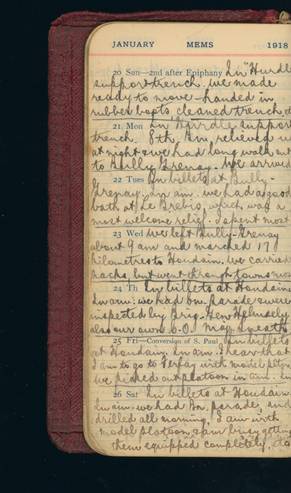 JANUARY MEMS 1918
20 Sun—2nd after Epiphany In "Hurdle
support trench. we made
ready to move - handed in
rubber boots cleaned trench, &
21 Mon In Hurdle support
trench. 8th Bn. relieved us
at night & we had long walk out
to Bully Grenay. We arrived
22 Tues In billets at Bully-
Grenay. In am. we had a good
bath at Le Brebis, which was a
most welcome relief. I spent most
23 Wed We left Bully-Grenay
about 9 am and marched 17
kilometres to Houdain. We carried
packs, but went through towns
24 Th In billets at Houdain
In am: we had bn. parade & were
inspected by Brig. Gen
also our own O.C.
25 Fri—Conversion of S. Paul In billets
at Houdain. In am. I hear that
I am to go to with model pltn.
We picked out platoon in am.
26 Sat In billets at Houdain
In am: we had Bn. parade, and
drilled all morning. I am with
model platoon & am busy getting
them equipped completely.